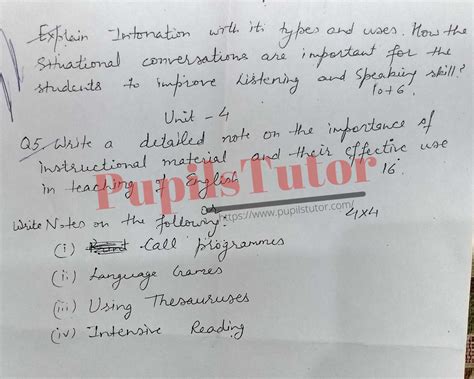 Explain Intonation with its types and uses. How the
Situational conversations are important for the
students to improve Listening and Speaking skill?
10+6.
Unit - 4
Q5. Write a detailed note on the importance of
instructional material and their effective use
in teaching of English
16
PupilsTutor
Or
https://www.pupilstutor.com/
Write Notes on the following:
4x4
(i) Call programmes
(ii) Language Games
(iii) Using Thesauruses
(iv) Intensive Reading